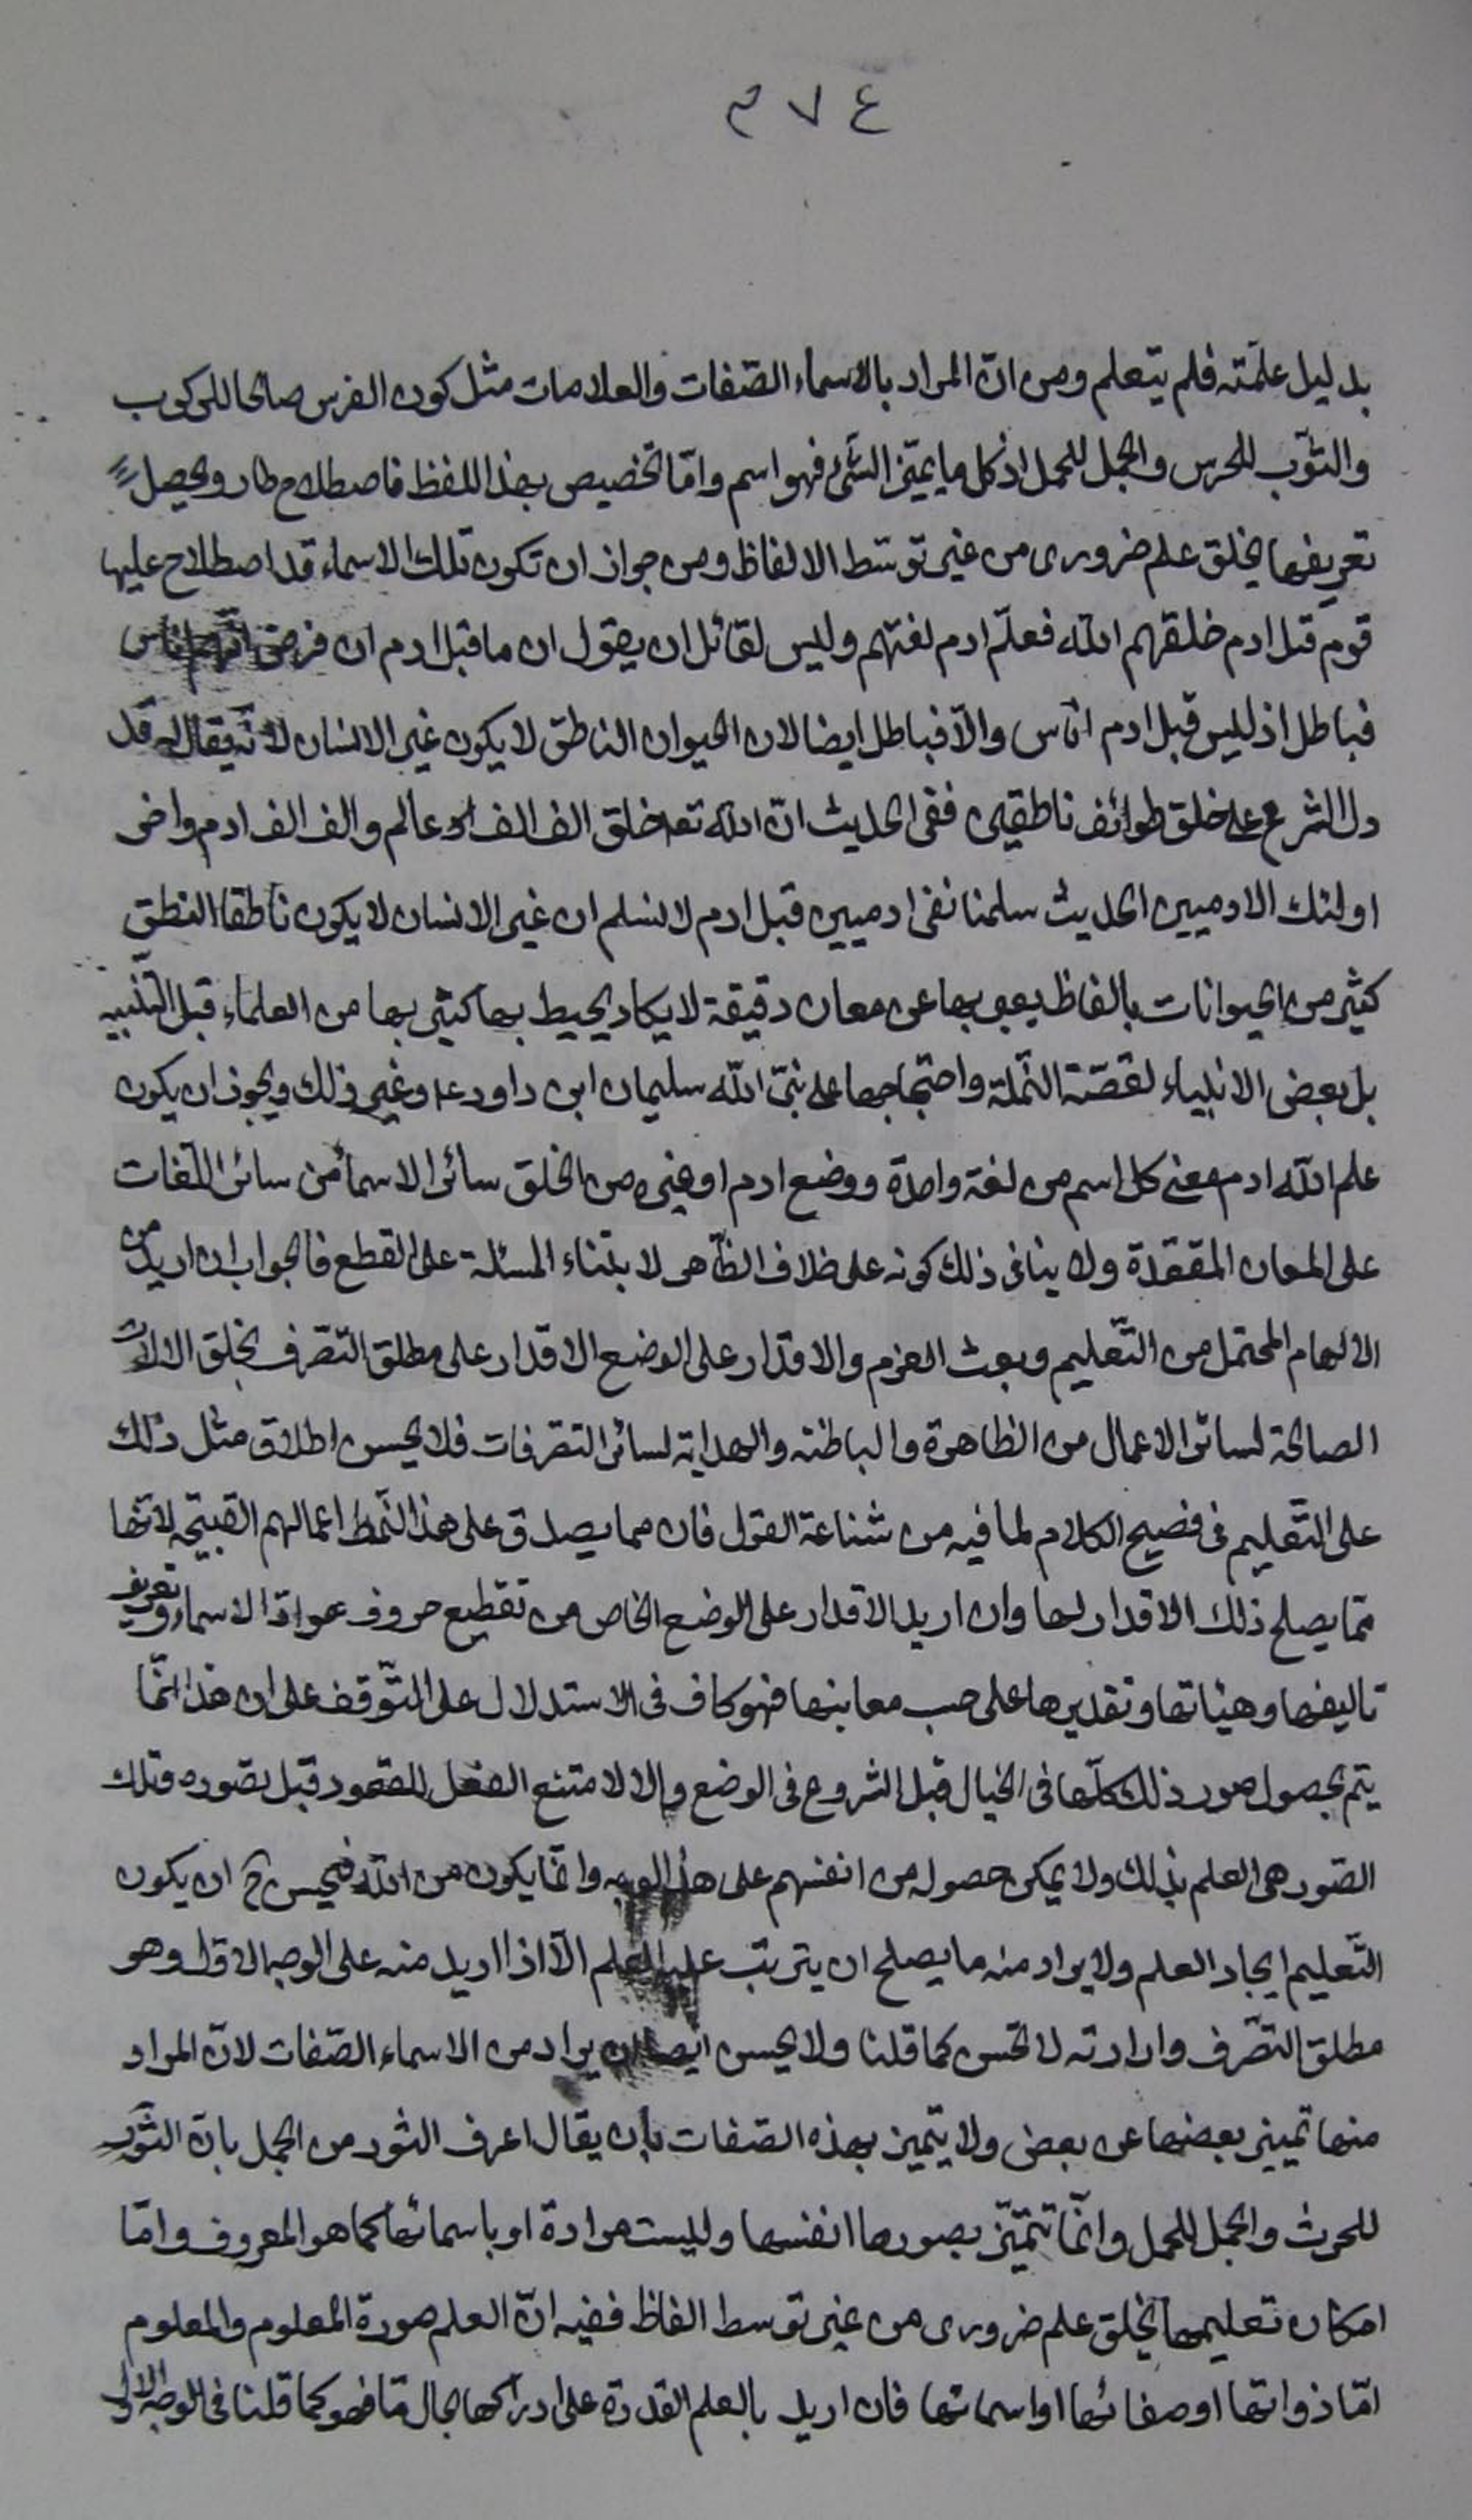 ٣٧٤
بدليل علمته فلم يتعلم ومن انّ المراد بالاسماء الصّفات والعلامات مثل كون الفرس صالحا للركوب
والثّوب للحرس والجمل للحمل اذ كل ما يميّز الشّئ فهو اسم وامّا تخصيص بهذا اللفظ فاصطلاح طار ويحصل
تعريفها بخلق علم ضرورى من غير توسّط الالفاظ ومن جواز ان تكون تلك الاسماء قد اصطلاح عليها
قوم قبل ادم خلقهم اللّه فعلّم ادم لغتهم وليس لقائل ان يقول ان ما قبل ادم ان فرض انّهم اناس
فباطل اذ ليس قبل ادم اناس والّا فباطل ايضا لان الحيوان الناطق لا يكون غير الانسان لانّه يقال له قد
دل الشرع على خلق طوائف ناطقين ففى الحديث انّ اللّه تعا خلق الف الف عالم والف الف ادم واخر
اولئك الادميين الحديث سلمنا نفى ادميين قبل ادم لا نسلم ان غير الانسان لا يكون ناطقا لنطق
كثير من الحيوانات بالفاظ يعبر بها عن معان دقيقة لا يكاد يحيط بها كثير بها من العلماء قبل التنبيه
بل بعض الانبياء لقصّة النّملة واحتجاجها على نبىّ اللّه سليمان ابن داود ع وغير ذلك ويجوز ان يكون
علم اللّه ادم معنى كل اسم من لغة واحدة ووضع ادم او غيره من الخلق سائر الاسماء من سائر اللّغات
على المعان المقعّدة ولا ينافى ذلك كونه على خلاف الظّاهر لابتناء المسئلة على القطع فالجواب ان اريد من
الالهام المحتمل من التّعليم وبعث العزم والاقدار على الوضع الاقدار على مطلق التّصرّف بخلق الالات
الصالحة لسائر الاعمال من الظاهرة والباطنه والهداية لسائر التصرفات فلا يحسن اطلاق مثل ذلك
على التّعليم فى فصيح الكلام لما فيه من شناعة القول فان مما يصدق على هذا النّمط اعمالهم القبيحه لانّها
ممّا يصلح ذلك الاقدار لها وان اريد الاقدار على الوضع الخاص من تقطيع حروف موادّ الاسماء وتعريف
تاليفها وهيئاتها وتقديرها على حسب معانيها فهو كاف فى الاستدلال على التّوقف على ان هذا انّما
يتم بحصول صور ذلك كلّها فى الخيال قبل الشروع فى الوضع والا لامتنع الفعل المقصود قبل تصوره وتلك
الصّور هى العلم بذلك ولا يمكن حصوله من انفسهم على هذا الوجه وانما يكون من اللّه فيحسن ح ان يكون
التّعليم ايجاد العلم ولا يراد منه ما يصلح ان يترتب عليه العلم الّا اذا اريد منه على الوجه الاوّل وهو
مطلق التصّرف وارادته لا تحسن كما قلنا ولا يحسن ايضا ان يراد من الاسماء الصّفات لانّ المراد
منها تمييز بعضها عن بعض ولا يتميز بهذه الصّفات بان يقال اعرف الثور من الجمل بانّ الثّور
للحرث والجمل للحمل وانّما تتميّز بصورها انفسها وليست مرادة او باسمائها كما هو المعروف وامّا
امكان تعليمها بخلق علم ضرورى من غير توسط الفاظ ففيه انّ العلم صورة المعلوم والمعلوم
امّا ذواتها او صفاتها او اسمائها فان اريد بالعلم القدرة على ادراكها بحال مّا فهو كما قلنا فى الوجه الاول